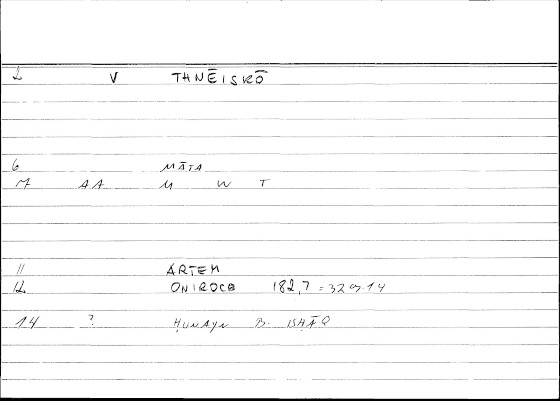 2 V THNĒISKŌ
6 MĀTA
7 AA M W T
11 ARTEM
12 ONIROCB 182,7 = 329.14
14 ? ḤUNAYN B. ISḤĀQ